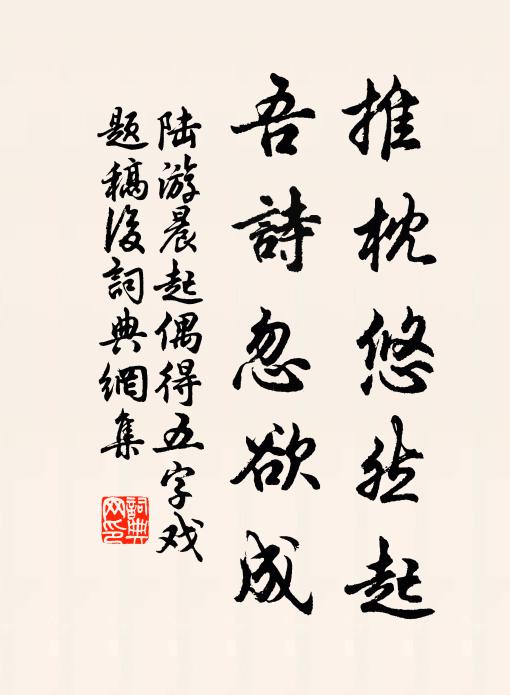 推枕悠然起
吾詩忽欲成
陆游晨起偶得五字戏
题稿後詞典網集
詞典
网印